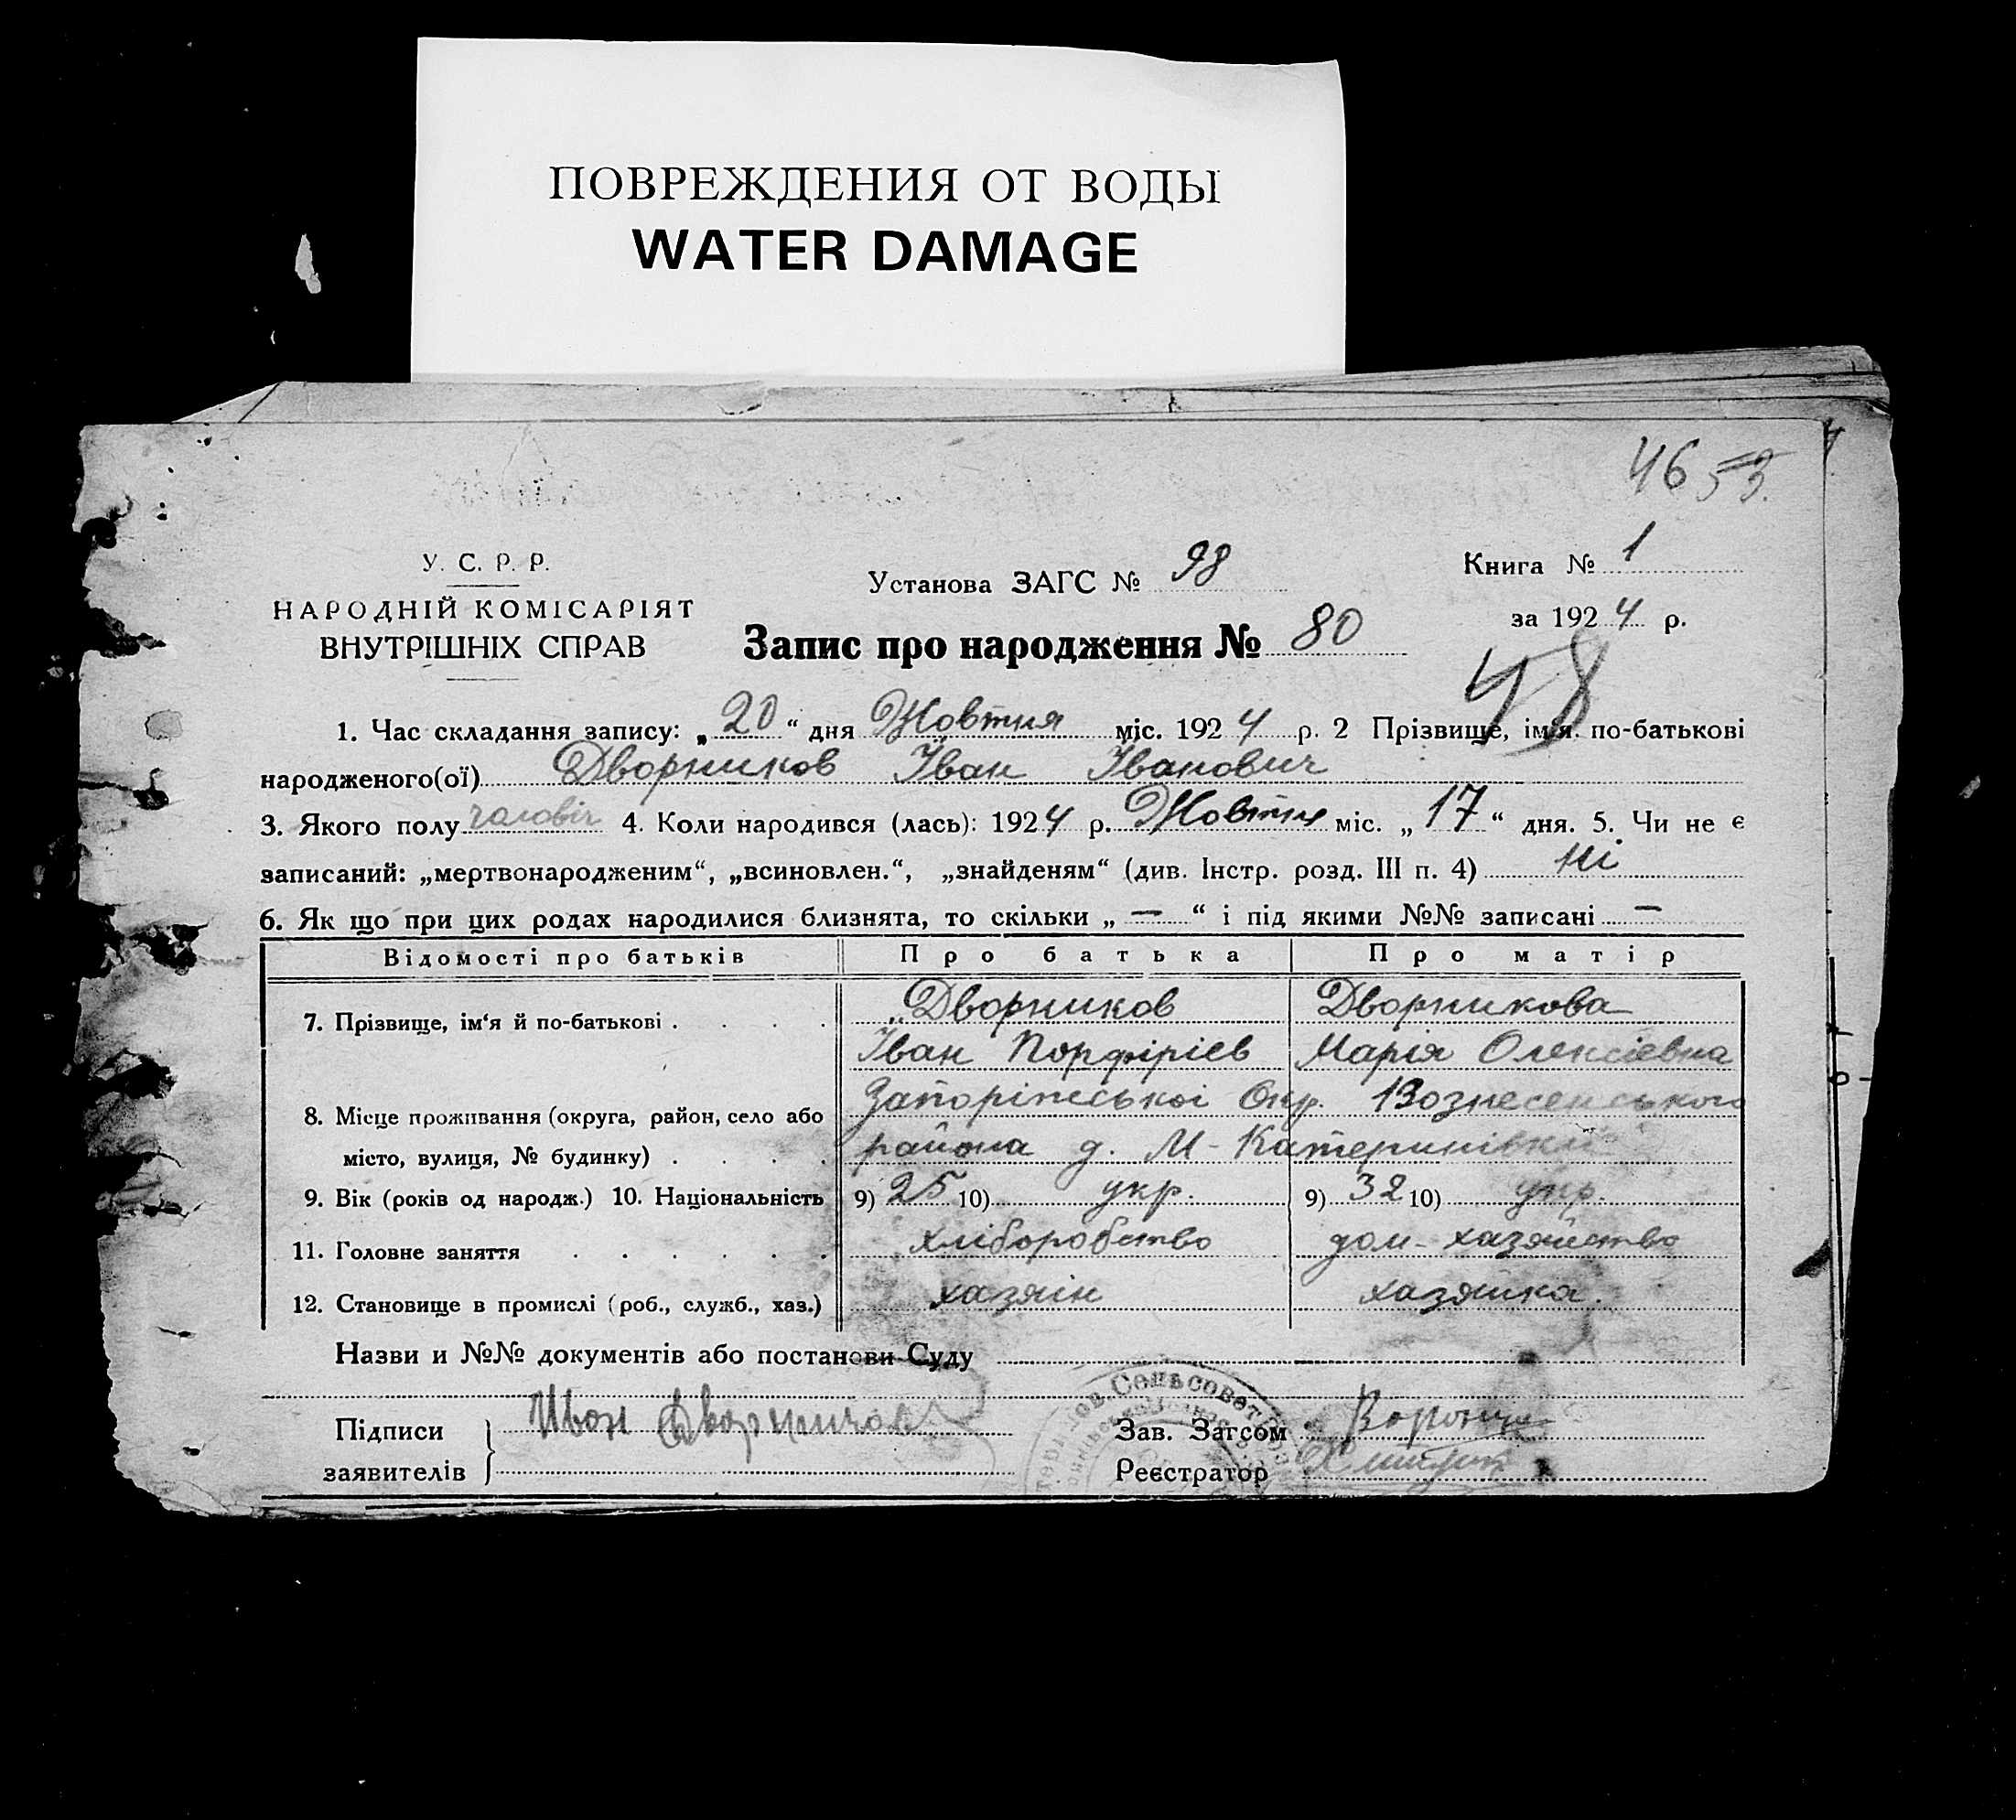 ПОВРЕЖДЕНИЯ ОТ ВОДЫ
WATER DAMAGE
46 53.
У. С. Р. Р.
НАРОДНІЙ КОМІСАРІЯТ
ВНУТРІШНІХ СПРАВ
Установа ЗАГС № 98
Книга № 1
за 1924 р.
Запис про народження № 80
48
1. Час складання запису: „20“ дня Жовтня міс. 1924 р. 2 Прізвище, ім'я по-батькові
народженого(ої) Дворников Іван Іванович
3. Якого полу чоловіч 4. Коли народився (лась): 1924 р. Жовтня міс. „17“ дня. 5. Чи не є
записаний: „мертвонародженим“, „всиновлен.“, „знайденям“ (див. Інстр. розд. III п. 4) ні
6. Як що при цих родах народилися близнята, то скільки „—“ і під якими №№ записані —
Відомості про батьків Про батька Про матір
7. Прізвище, ім'я й по-батькові . . . . Дворников Дворникова
Іван Порфіріев Марія Олексіевна
8. Місце проживання (округа, район, село або Запоріжської Окр. Вознесенського
місто, вулиця, № будинку) . . . . района д. М-Катеринівки
9. Вік (років од народж.) 10. Національність 9) 25 10) укр. 9) 32 10) укр.
11. Головне заняття . . . . . . хліборобство дом-хазяйство
12. Становище в промислі (роб., служб., хаз.) хазяїн хазяйка.
Назви и №№ документів або постанови Суду
Підписи Иван Дворников Зав. Загсом
заявителів Реєстратор